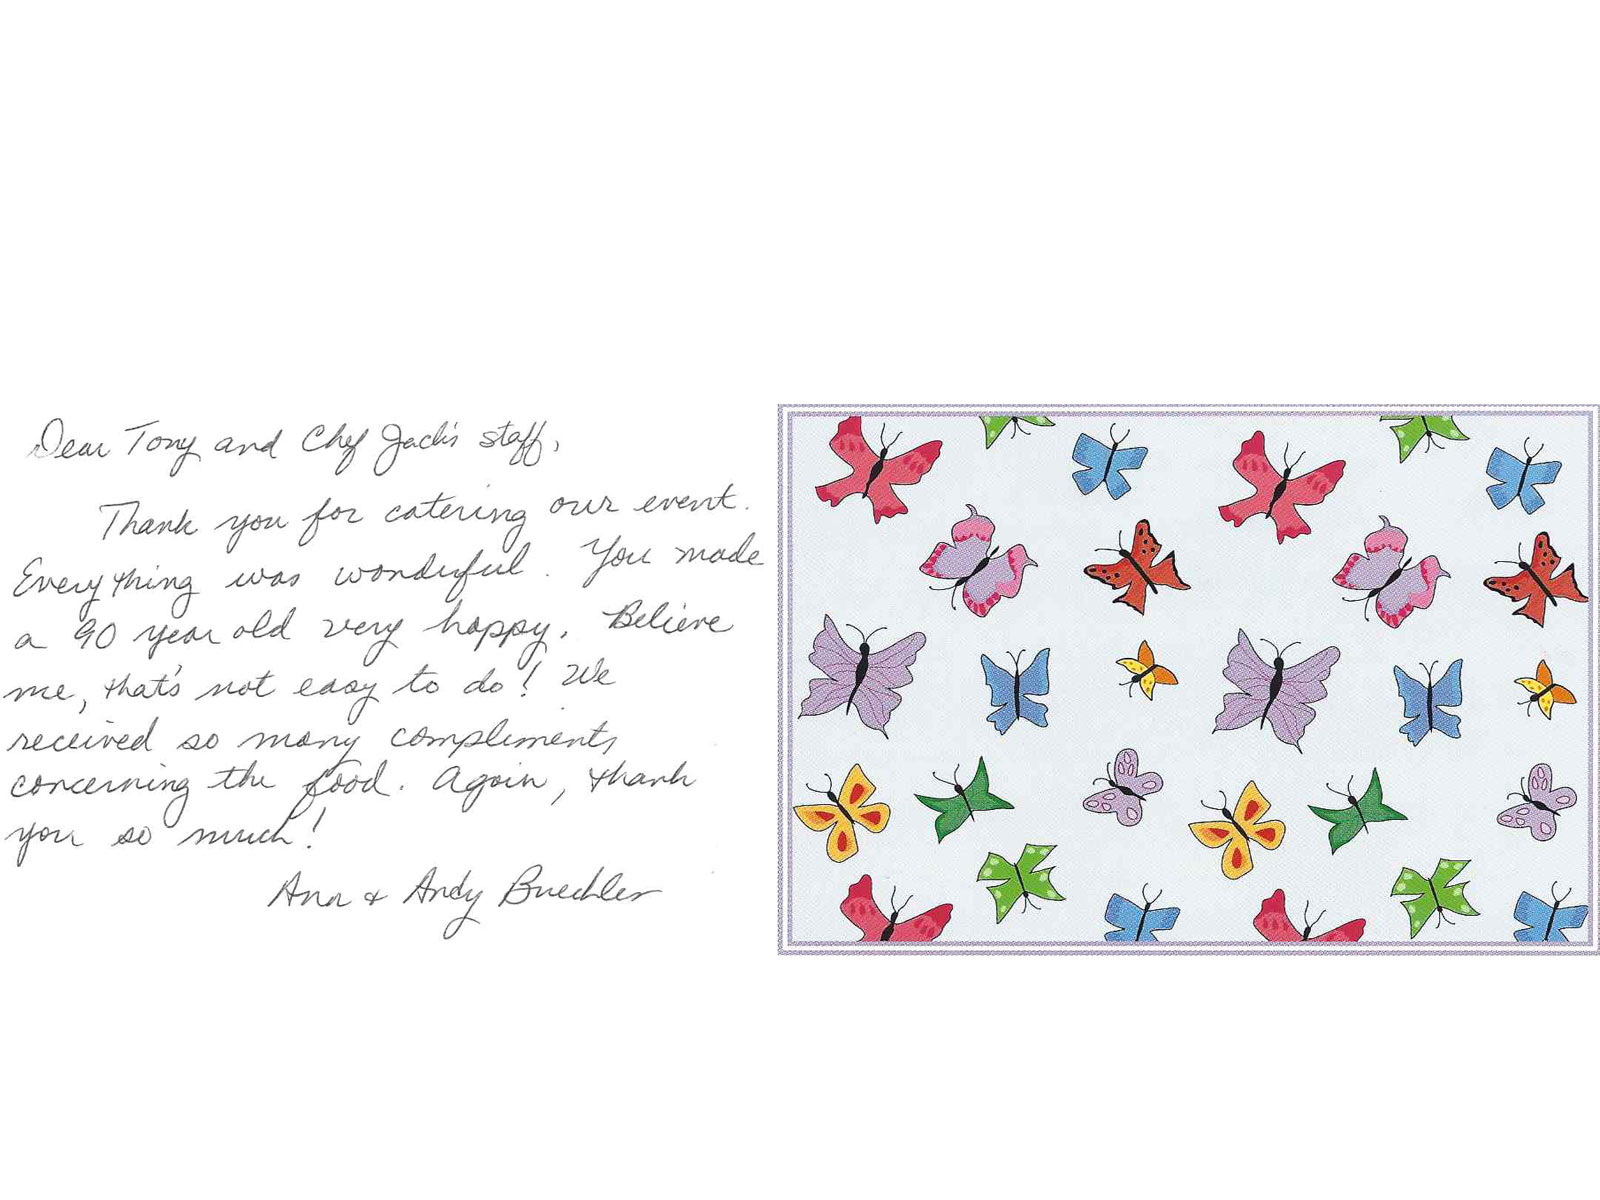 Dear Tony and Chef Jack's staff,
Thank you for catering our event.
Everything was wonderful. You made
a 90 year old very happy. Believe
me, that's not easy to do! We
received so many compliments
concerning the food. Again, thank
you so much!
Ann & Andy Buechler